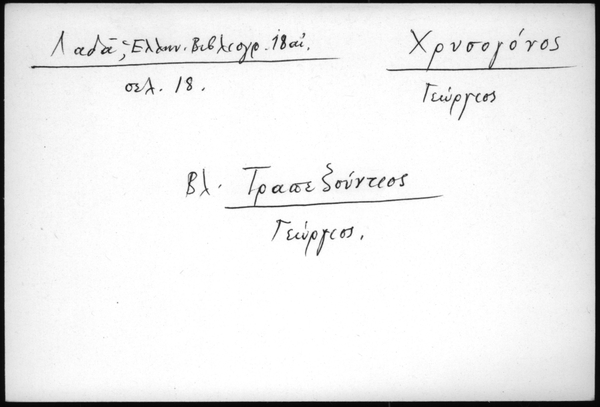 Λαδᾶ, Ἑλλην. Βιβλιογρ. 18 αἰ.
σελ. 18.
Χρυσογόνος
Γεώργιος
Βλ. Τραπεζούντιος
Γεώργιος.